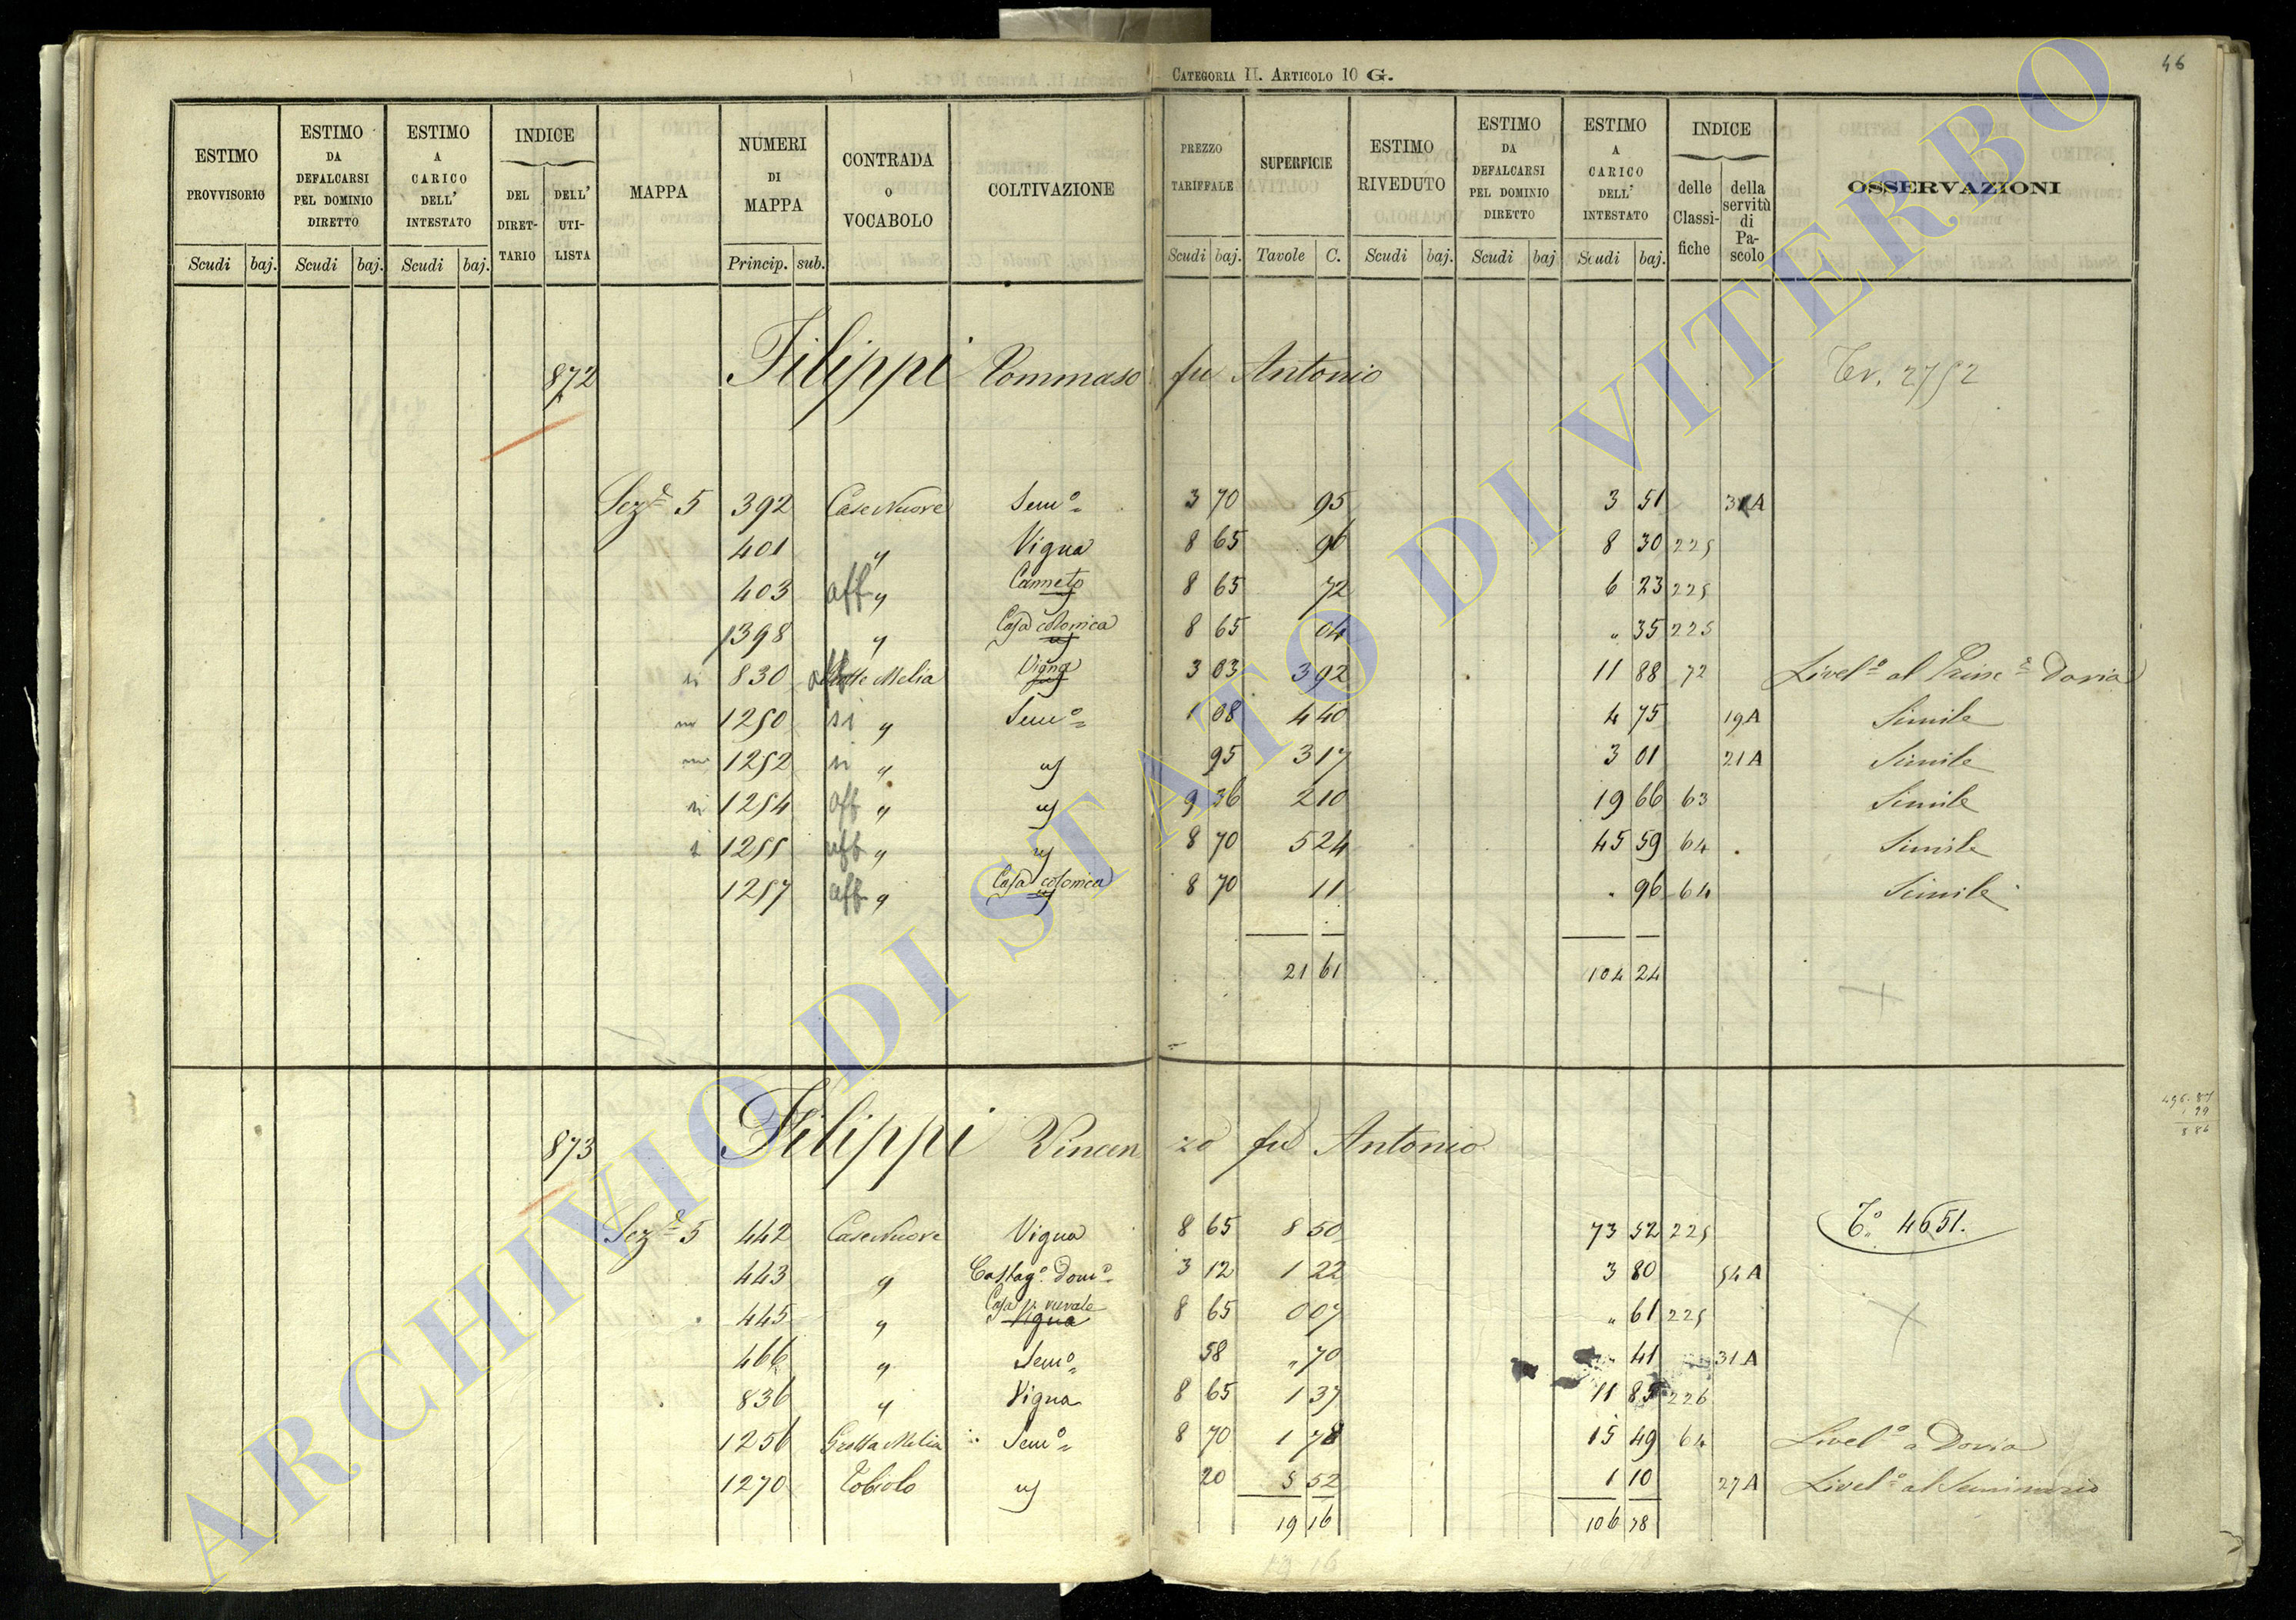 CATEGORIA II. ARTICOLO 10 G.
46
ESTIMO PROVVISORIO | ESTIMO DA DEFALCARSI PEL DOMINIO DIRETTO | ESTIMO A CARICO DELL' INTESTATO | INDICE DEL DIRETTARIO | DELL' UTILISTA | MAPPA | NUMERI DI MAPPA | CONTRADA O VOCABOLO | COLTIVAZIONE | PREZZO TARIFFALE | SUPERFICIE | ESTIMO RIVEDUTO | ESTIMO DA DEFALCARSI PEL DOMINIO DIRETTO | ESTIMO A CARICO DELL' INTESTATO | INDICE delle Classifiche | della servitù di Pascolo | OSSERVAZIONI
Scudi baj. Scudi baj. Scudi baj. Princip. sub. Scudi baj. Tavole C. Scudi baj. Scudi baj Scudi baj.
872 Filippi Tommaso fu Antonio
Sezᵉ 5 392 Case Nuove Semᵒ 3 70 95 3 51 A
401 " Vigna 8 65 96 8 30 225
403 aff " Canneto 8 65 72 6 23 225
1398 " Casa colonica 8 65 04 " 35 225
si 830 Grotte Melia Vigna 3 03 3 92 11 88 72 Livelᵒ al Princᵉ Doria
1250 si " Semᵒ 1 08 4 40 4 75 19A Simile
1252 si " " 95 3 17 3 01 21A Simile
si 1254 aff " " 9 36 2 10 19 66 63 Simile
1255 aff " " 8 70 5 24 45 59 64 Simile
1257 aff " Casa colonica 8 70 11 " 96 64 Simile
21 61 104 24
873 Filippi Vincenzo fu Antonio
Sezᵉ 5 442 Case Nuove Vigna 8 65 8 50 73 52 225 4651.
443 " Castagᵒ domᵒ 3 12 1 22 3 80 54 A
445 " Casa rurale Vigna 8 65 0 07 " 61 225
466 " Semᵒ 58 " 70 41 31 A
836 " Vigna 8 65 1 37 11 85 226
1256 Grotta Melia Semᵒ 8 70 1 78 15 49 64 Livelᵒ a Doria
1270 Tobiolo " 20 5 52 1 10 27A Livelᵒ al Seminario
19 16 106 78
ARCHIVIO DI STATO DI VITERBO